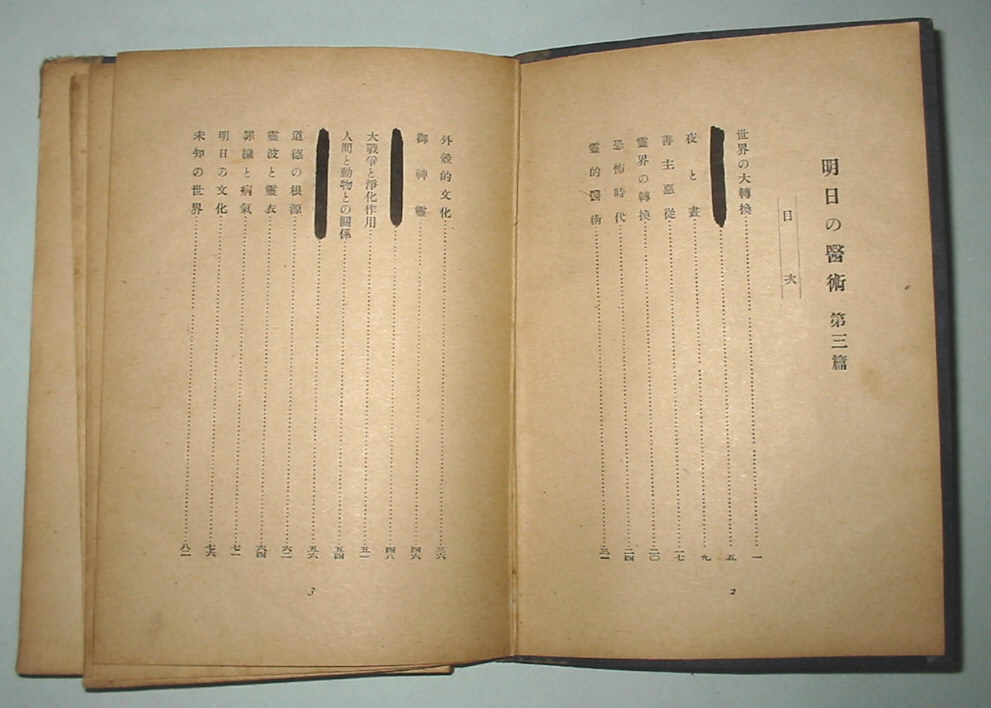 明日の醫術 第三篇
目次
世界の大轉換 一
五
夜と晝 九
善主惡從 一七
靈界の轉換 二〇
恐怖時代 二四
靈的醫術
2
外殼的文化 三六
御神靈 四六
四八
大戰爭と淨化作用 五一
人間と動物との關係 五四
五六
道德の根源 六一
靈波と靈衣 六四
罪穢と病氣 七一
明日の文化 七六
未知の世界 八一
3